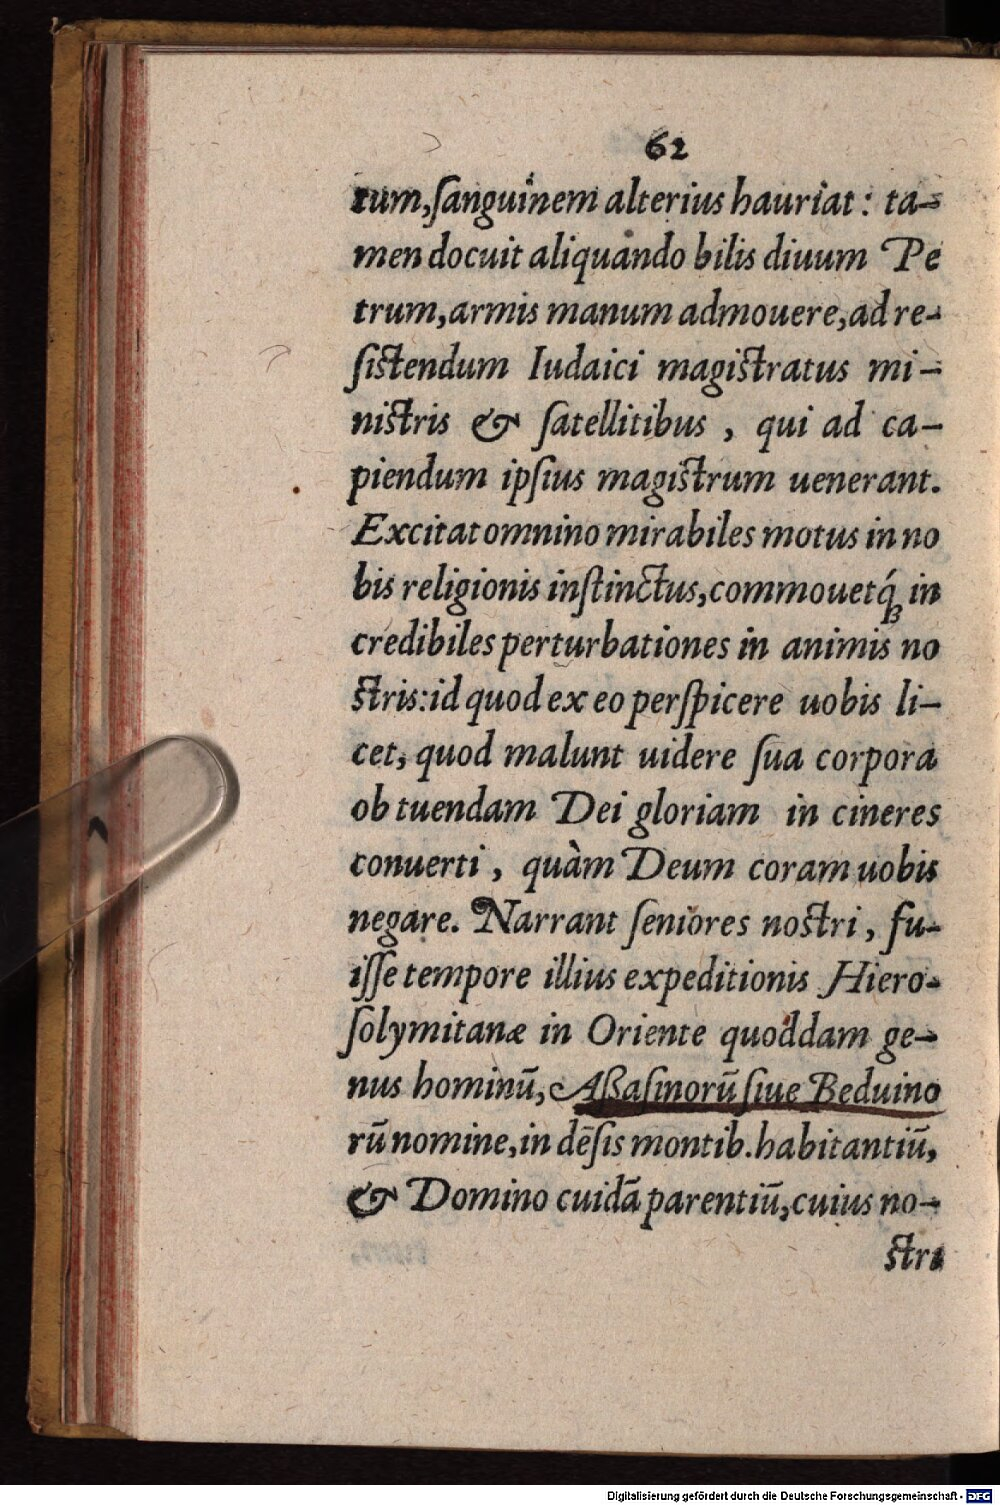 62
tum,ſanguinem alterius hauriat: ta-
men docuit aliquando bilis diuum Pe
trum,armis manum admouere,ad re-
ſiſtendum Iudaici magiſtratus mi-
niſtris & ſatellitibus , qui ad ca-
piendum ipſius magiſtrum uenerant.
Excitat omnino mirabiles motus in no
bis religionis inſtinctus,commouetq́ꝫ in
credibiles perturbationes in animis no
ſtris:id quod ex eo perſpicere uobis li-
cet, quod malunt uidere ſua corpora
ob tuendam Dei gloriam in cineres
conuerti , quàm Deum coram uobis
negare. Narrant ſeniores noſtri, fu-
iſſe tempore illius expeditionis Hiero-
ſolymitanæ in Oriente quoddam ge-
nus hominū, Aßaſinorū ſiue Beduino
rū nomine,in dēſis montib.habitantiū,
& Domino cuidā parentiū,cuius no-
ſtri
Digitalisierung gefördert durch die Deutsche Forschungsgemeinschaft - DFG